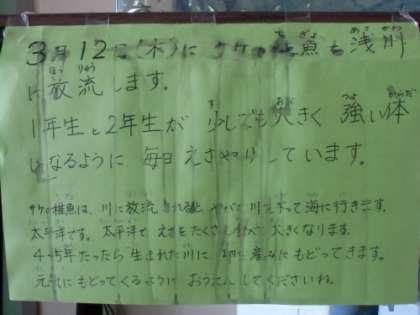 3月12日(木)に サケの稚魚を浅川
に放流します。
1年生と2年生が 少しでも大きく 強い体
になるように、毎日 えさやりをしています。
サケの稚魚は、川に放流されると やがて 川を下って 海に行きます。
太平洋です。太平洋で えさをたくさん 大きくなります。
4〜5年たったら 生まれた川に 産みにもどってきます。
元気にもどってくるように おうえんしてくださいね。